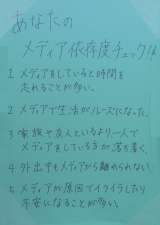 あなたの
メディア依存度チェック!!
1 メディアをしていると時間を
忘れることが多い。
2 メディアで生活がルーズになった。
3 家族や友人といるより一人で
メディアをしている方が落ち着く。
4 外出中もメディアから離れられない
5 メディアが原因でイライラしたり
不安になることが多い。